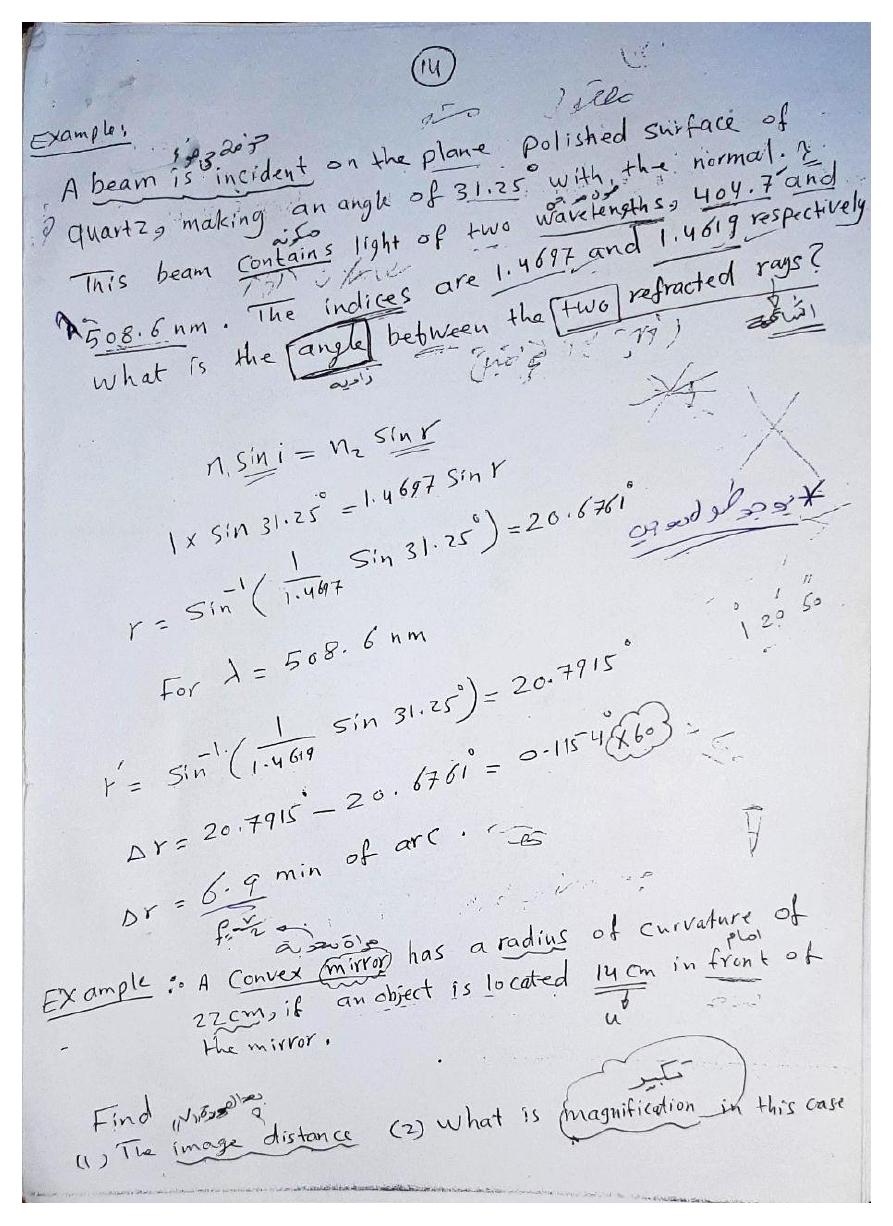 14
Example:
A beam is incident on the plane polished surface of
quartz, making an angle of 31.25° with the normal.
This beam contains light of two wavelengths, 404.7 and
508.6 nm. The indices are 1.4697 and 1.4619 respectively
what is the angle between the two refracted rays?
زاويه
n₁ sin i = n₂ sin r
1 x sin 31.25° = 1.4697 sin r
r = sin⁻¹ ( 1/1.4697 sin 31.25° ) = 20.6761°
For λ = 508.6 nm
1 20 50
r' = sin⁻¹ ( 1/1.4619 sin 31.25° ) = 20.7915°
Δr = 20.7915° - 20.6761° = 0.1154° x60
Δr = 6.9 min of arc.
Example: A convex mirror has a radius of curvature of
امام
22 cm, if an object is located 14 cm in front of
u
the mirror.
تكبير
Find
(1) The image distance (2) what is magnification in this case